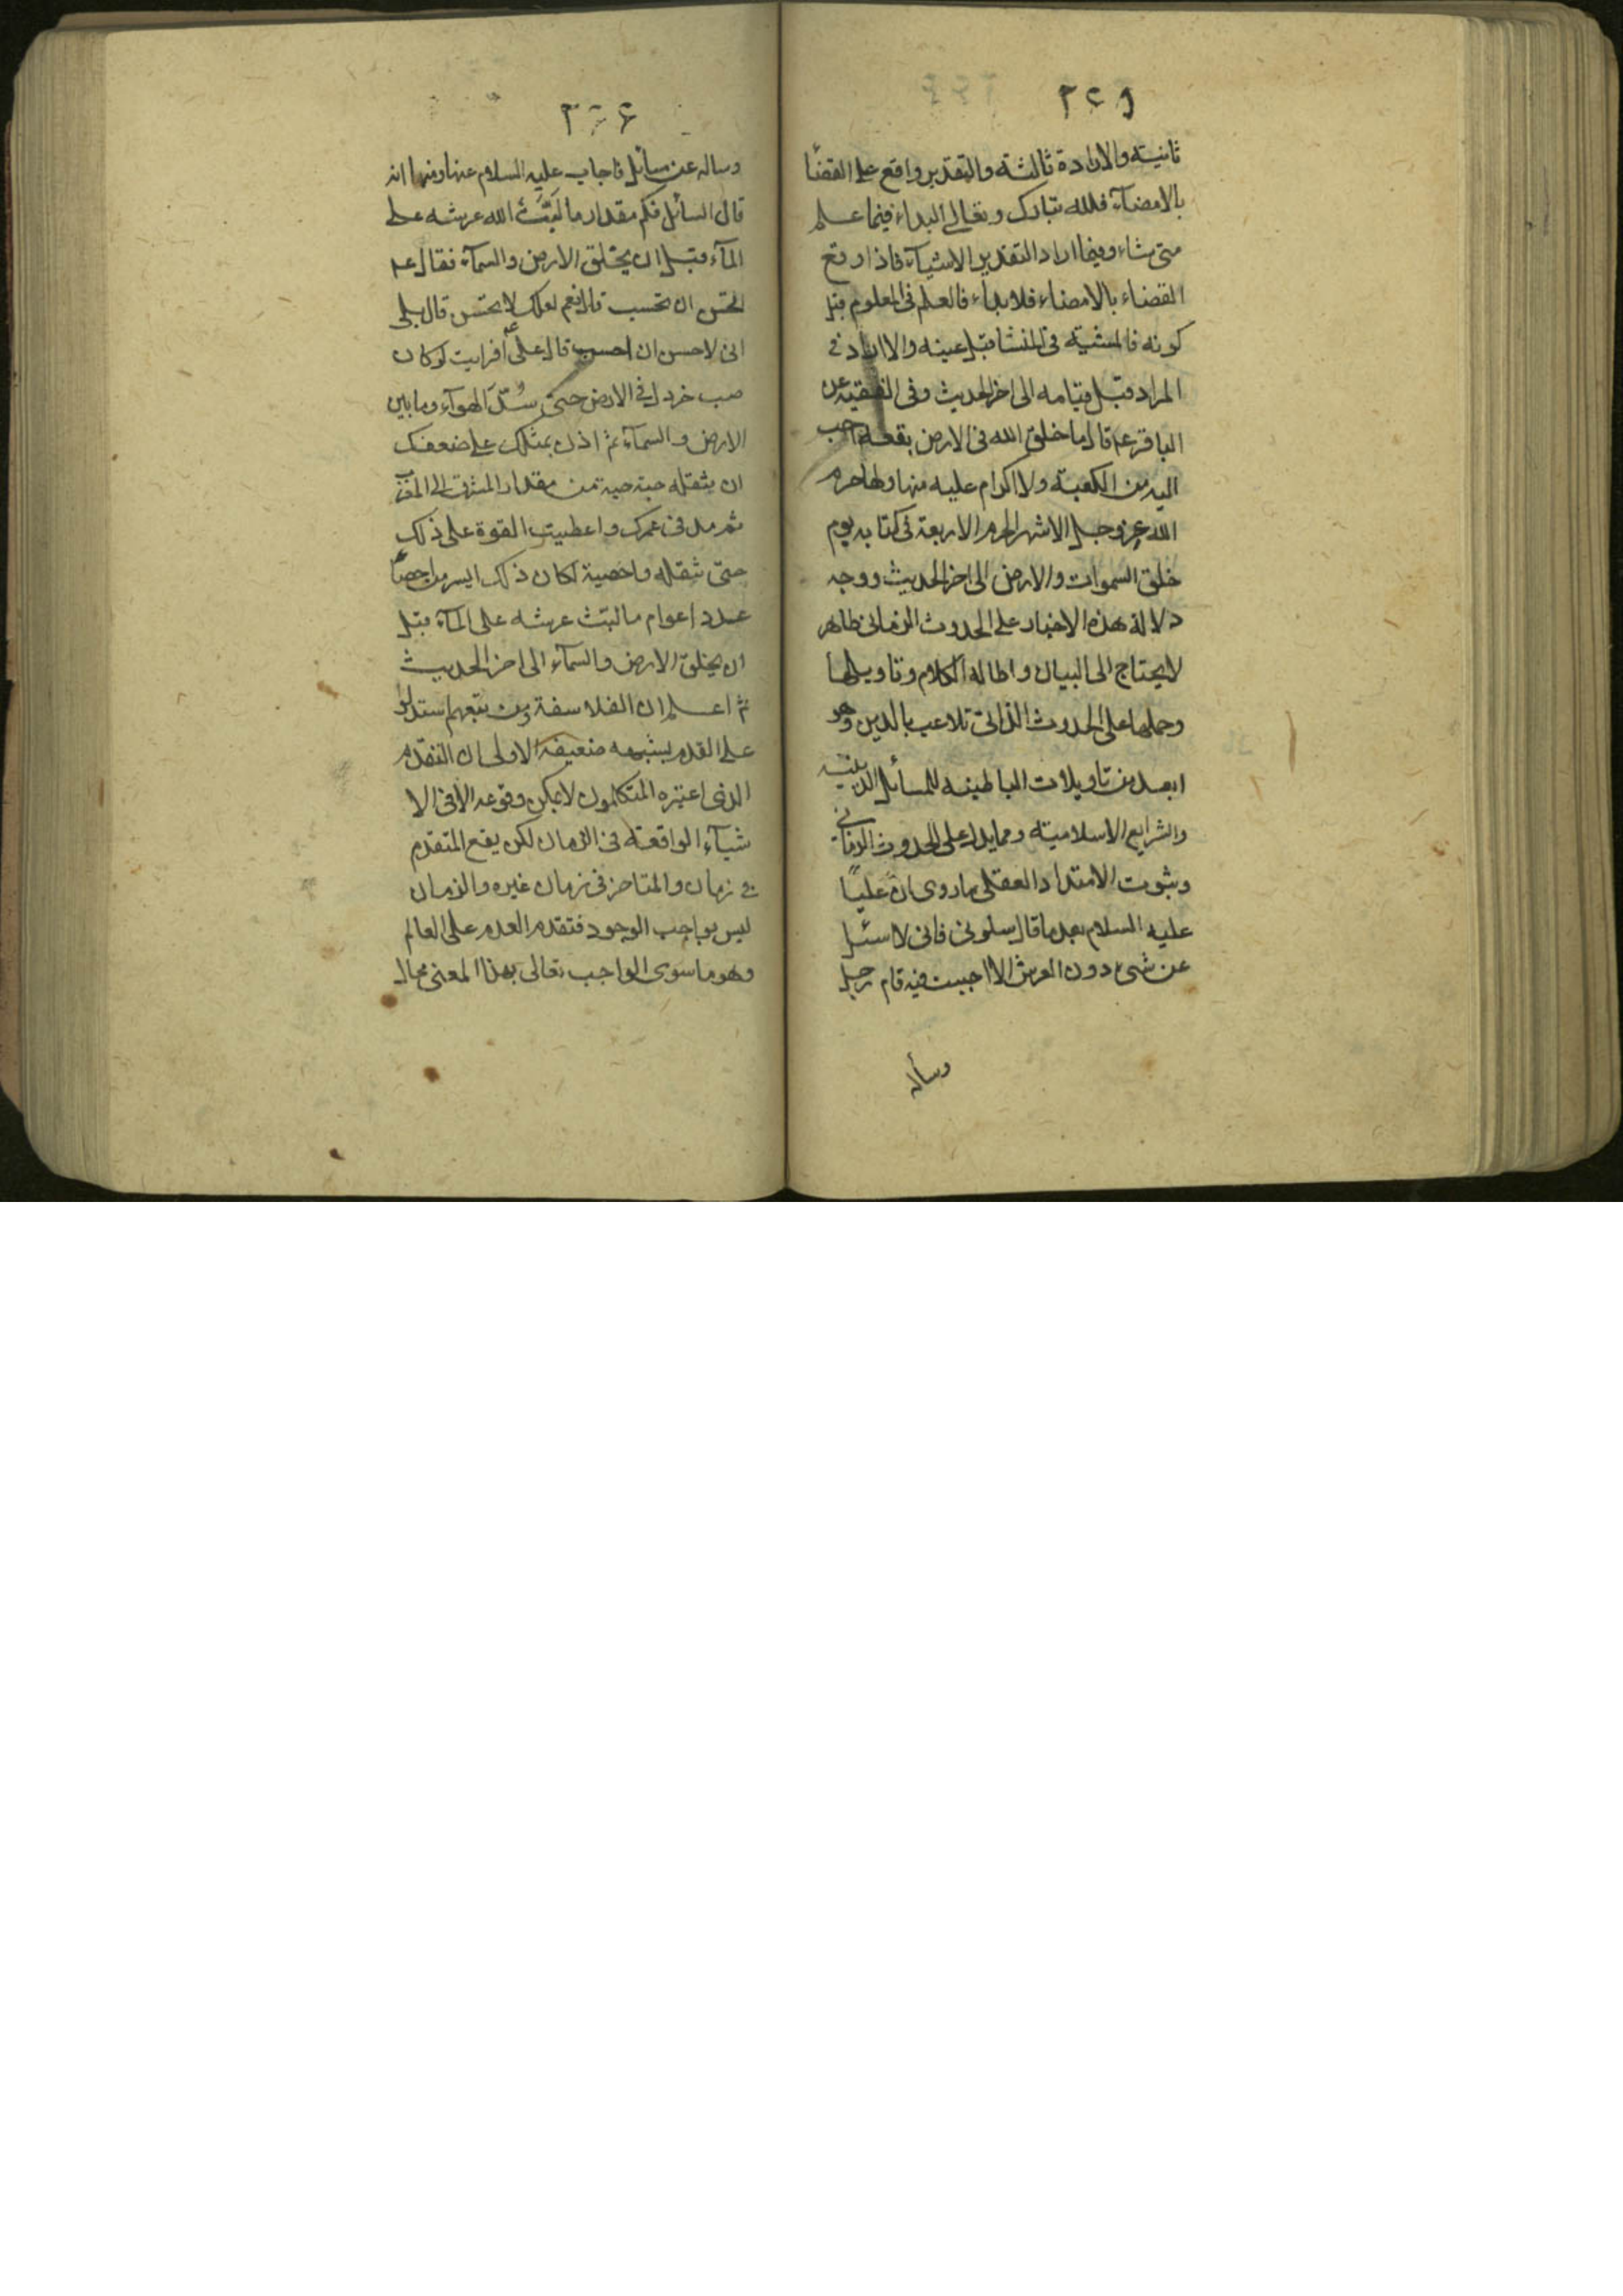 ٢٤٥
ثانيته والارادة ثالثة والتقدير واقع على القضاً
بالامضآء فلله تبارك وتعالى البداء فيما علم
متى شاء وفيما اراد التقدير الاشيآء فاذا وقع
القضاء بالامضاء فلا بداء فالعلم فى المعلوم قبل
كونه فالمشية فى المنشا قبل عينه والاراد فى
المراد قبل قيامه الى اخر الحديث وفى الفقيه عن
الباقر ع قال ما خلق الله فى الارض بقعة احب
اليه من الكعبة ولا اكرام عليه منها ولها حرم
الله عز وجل الاشهر الحرم الاربعة فى كتابه يوم
خلق السموات والارض الى اخر الحديث ووجه
دلالة هذه الاخبار على الحدوث الزمانى ظاهر
لا يحتاج الى البيان واطالة الكلام وتاويلها
وحملها على الحدوث الذاتى تلاعب بالدين وهو
ابعد من تاويلات الباطنيه للمسائل الدينيه
والشرايع الاسلاميته ومما يدل على الحدوث الزمانى
وثبوت الامتداد العقلى ما روى ان علياً
عليه السلام بعد ما قال سلونى فانى لا اسئل
عن شىء دون العرش الا اجبت فيه قام رجل
وسأله
٢٤٦
وساله عن مسائل فاجاب عليه السلام عنها ومنها انه
قال السائل فكم مقدار ما لَبَّثَ الله عرشه على
المآء قبل ان يخلق الارض والسمآء فقال ع
اتحسن ان تحسب قال نعم لعلك لا تحسن قال بلى
انى لاحسن ان احسب قال على ع أفرايت لو كان
صب خردل فى الارض حتى سُدّ الهوآء وما بين
الارض والسمآء ثم اذن بمثلك على ضعفك
ان تنقله حبة حبة من مقدار المشرق الى المغرب
ثم مد فى عمرك واعطيت القوة على ذلك
حتى تنقله واحصيته لكان ذلك ايسر من احصآء
عدد اعوام ما لبثت عرشه على المآء قبل
ان يخلق الارض والسمآء الى اخر الحديث
ثم اعلم ان الفلاسفة ومن تبعهم استدلوا
على القدم بشبهه ضعيفة الاولى ان التقدم
الذى اعتبره المتكلمون لا يمكن وقوعه الا فى الا
شيآء الواقعة فى الزمان لكن يقع المتقدم
فى زمان والمتاخر فى زمان غيره والزمان
ليس بواجب الوجود فتقدم العدم على العالم
وهو ما سوى الواجب تعالى بهذا المعنى محال